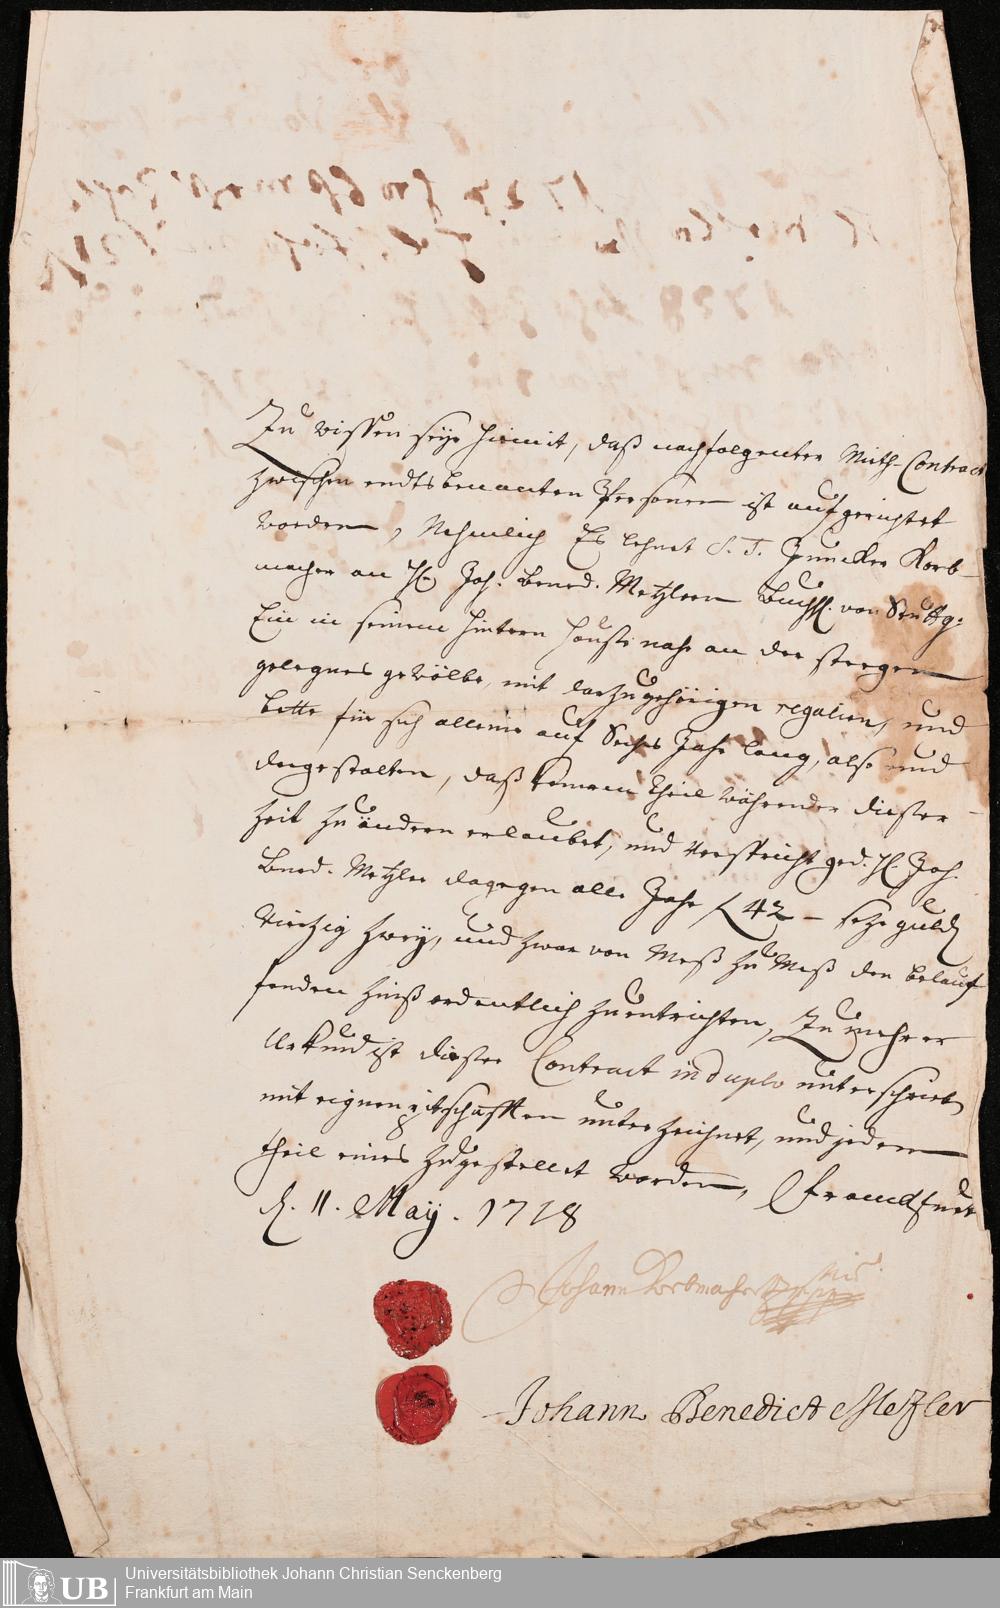 Zu wissen seye hiemit, daß nachfolgenter Mieth-Contract
zwischen endtsbenanten Persohnen ist aufgerichtet
worden, Nehmlich Es lehnet S. T. Juncker Korb-
macher an H. Joh. Bened. Metzlern Buchh. von Stuttg.
Ein in seinem hintern Hauße nahe an der steegen
gelegnes gewölbe, mit darzu gehörigen regalien, und
bette für sich alleine auf Sechs Jahr lang, also und
dergestalten, daß keinem theil währender dießer
Zeit zu ändern erlaubet, und verspricht ged. H. Joh.
Bened. Metzler dagegen alle Jahr f 42 – sage guld
Viertzig zwey, und zwar von Meß zu Meß den belauf-
fenden zinß ordentlich zu entrichten, Zu mehrer
Urkund ist dießer Contract in duplo unterschrieben
mit eignen pittschafften unterzeichnet, und jedem
theil eines zugestellet worden, Franckfurt
d. 11. May. 1718
Johann Korbmacher
Johann Benedict Mezler
UB
Universitätsbibliothek Johann Christian Senckenberg
Frankfurt am Main